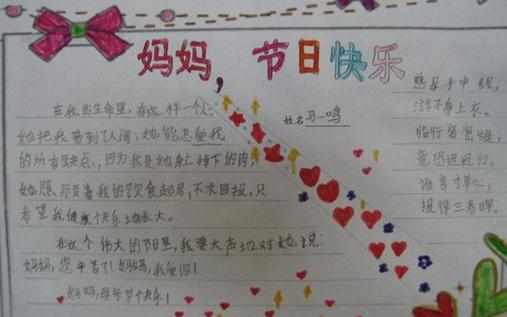 妈妈，节日快乐
姓名 马一鸣
在我的生命里，有这样一个人：
她把我带到人间；她能忍受我
的所有缺点，因为我是她身上掉下的肉，
她照顾着我的饮食起居，不求回报，只
希望我健康快乐地长大。
在这个伟大的节日里，我要大声地对她说
妈妈，您辛苦了！妈妈，我爱您！
妈妈，母亲节快乐！
慈母手中线，
游子身上衣。
临行密密缝，
意恐迟迟归。
谁言寸草心，
报得三春晖。